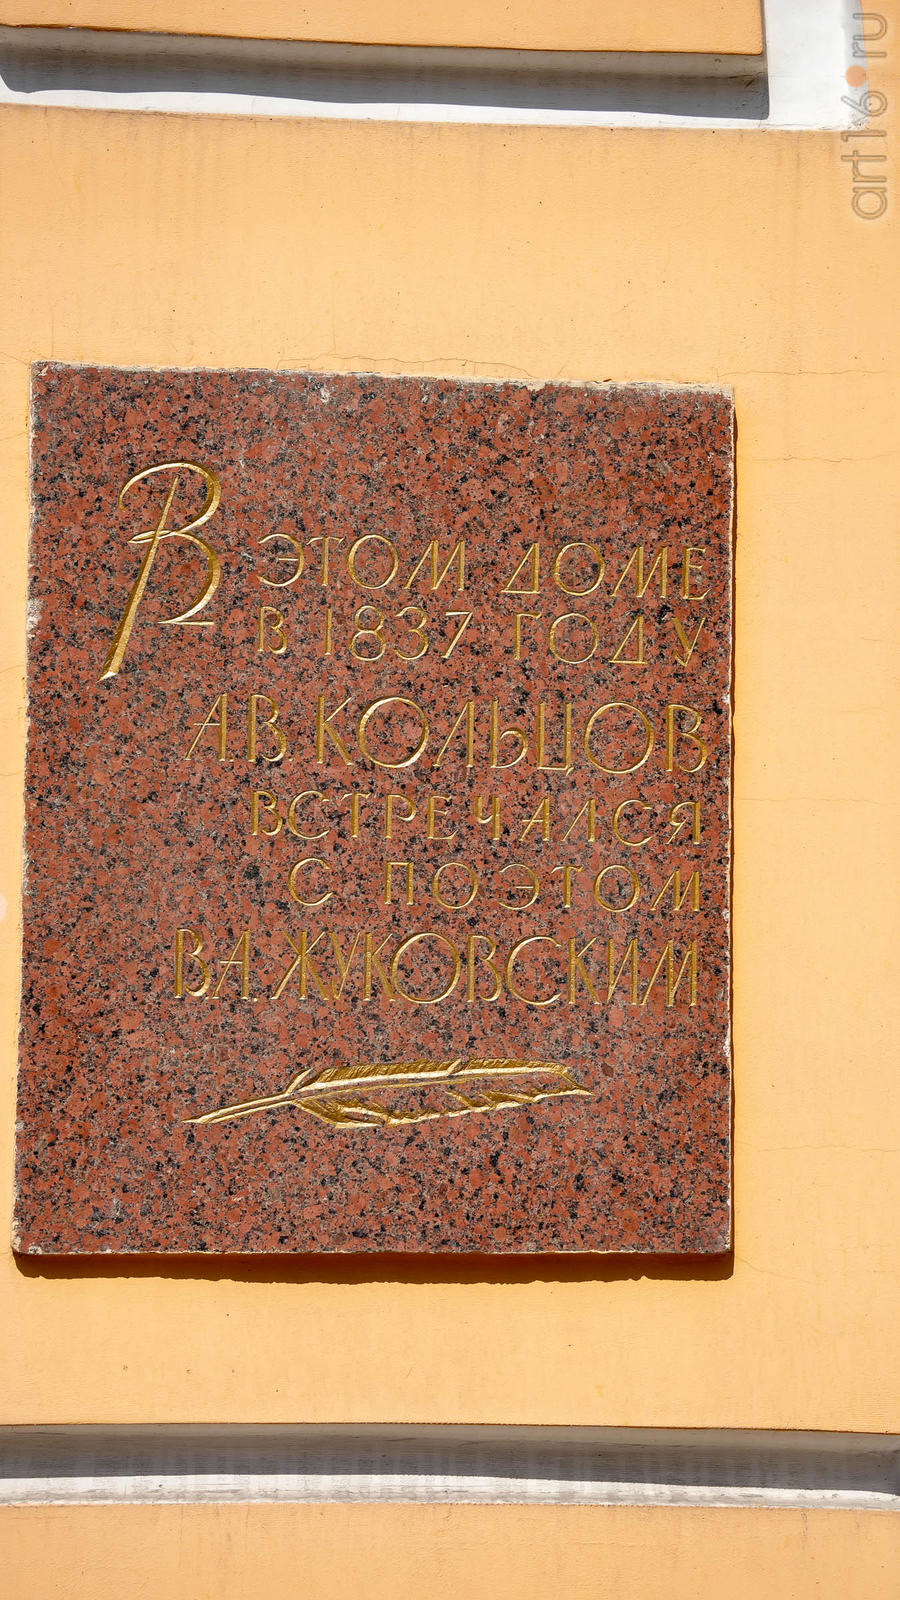 В ЭТОМ ДОМЕ
В 1837 ГОДУ
А.В. КОЛЬЦОВ
ВСТРЕЧАЛСЯ
С ПОЭТОМ
В.А. ЖУКОВСКИМ
art16.ru